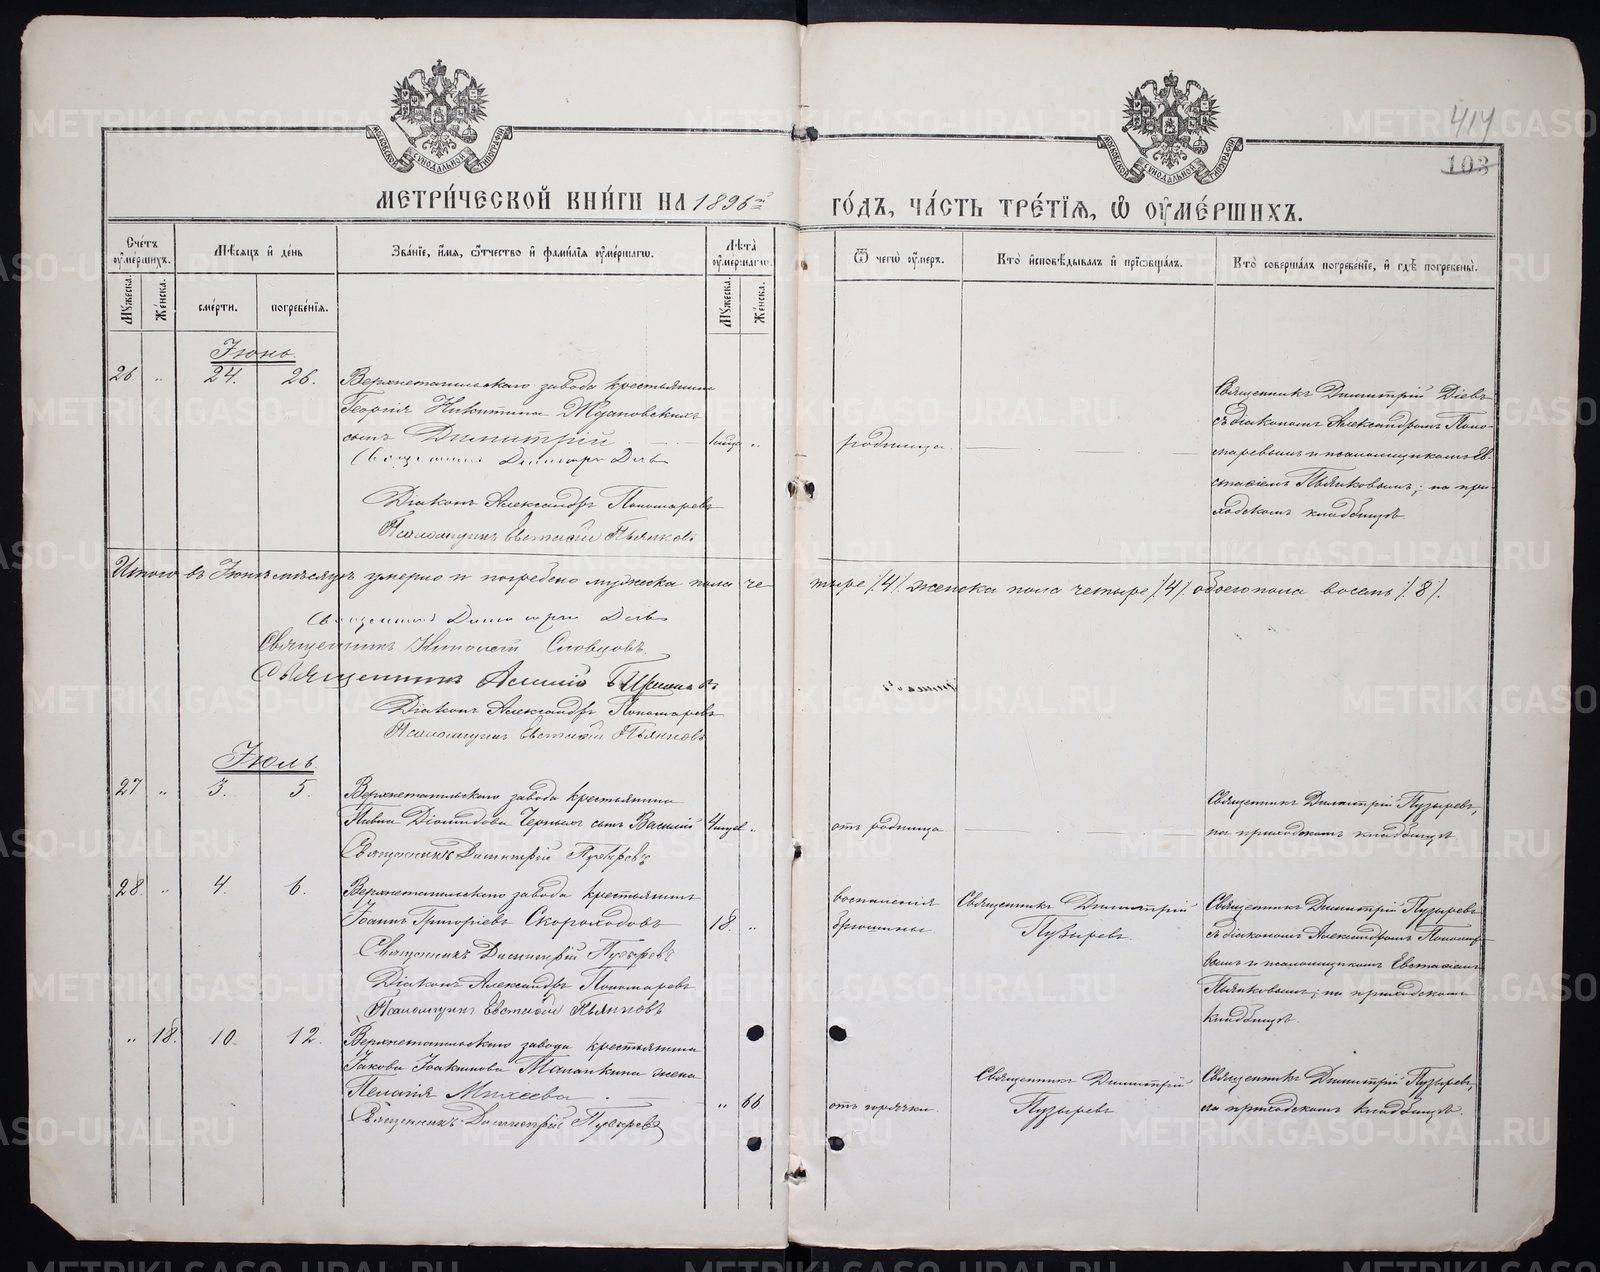 414
103
МОСКОВСКОЙ СѴНОДАЛЬНОЙ ТИПОГРАФИИ
МОСКОВСКОЙ СѴНОДАЛЬНОЙ ТИПОГРАФИИ
МЕТРИ́ЧЕСКОЙ КНИ́ГИ НА 1896й ГО́ДЪ, ЧА́СТЬ ТРЕ́ТІѦ, Ѡ ОУМЕ́РШИХЪ.
Сче́тъ оуме́ршихъ.
Мꙋ́жеска.
Же́нска.
Мѣ́сяцъ и де́нь
сме́рти.
погребе́нїя.
Зва́нїе, и́мя, ѻ҆́тчество и фами́лїя оуме́ршагѡ.
Лѣ́та оуме́ршагѡ.
Мꙋ́жеска.
Же́нска.
Ѿ чегѡ̀ оу́меръ.
Кто̀ исповѣ́дывалъ и прїѡбща́лъ.
Кто̀ соверша́лъ погребе́нїе, и гдѣ̀ погребены̀.
Іюнь.
26 „ 24. 26. Верхнетагильскаго завода крестьянина
Георгія Никитина Ждановскихъ
сынъ Димитрій 1 мца „ родимца
Священникъ Димитрій Діевъ
Діаконъ Александръ Пономаревъ
Псаломщикъ Евстафій Пьянковъ
Священникъ Димитрій Діевъ
съ діакономъ Александромъ Поно-
маревымъ и псаломщикомъ Ев-
стафіемъ Пьянковымъ; на при-
ходскомъ кладбищѣ.
Итого въ Іюнѣ мѣсяцѣ умерло и погребено мужеска пола че тыре /4/ женска пола четыре /4/ обоего пола восемь /8/.
Священникъ Димитрій Діевъ
Священникъ Словцовъ.
Священникъ
Діаконъ Александръ Пономаревъ
Псаломщикъ Евстафій Пьянковъ
Іюль.
27 „ 3. 5. Верхнетагильскаго завода крестьянина
Павла Діомидова Черныхъ сынъ Василій 4 мцев „ отъ родимца
Священникъ Димитрій Пузыревъ
Священникъ Димитрій Пузыревъ,
на приходскомъ кладбищѣ
28. „ 4. 6. Верхнетагильскаго завода крестьянинъ
Іоаннъ Григорьевъ Скороходовъ 18. „
Священникъ Димитрій Пузыревъ
Діаконъ Александръ Пономаревъ
Псаломщикъ Евстафій Пьянковъ
воспаленія
брюшины
Священникъ Димитрій
Пузыревъ.
Священникъ Димитрій Пузыревъ
съ діакономъ Александромъ Пономаре-
вымъ и псаломщикомъ Евстафіемъ
Пьянковымъ; на приходскомъ
кладбищѣ.
„ 18. 10. 12. Верхнетагильскаго завода крестьянина
Іакова Іоакимова Маланкина жена
Пелагія Михеева „ 66 отъ горячки.
Священникъ Димитрій Пузыревъ
Священникъ Димитрій
Пузыревъ
Священникъ Димитрій Пузыревъ,
на приходскомъ кладбищѣ.
METRIKI.GASO-URAL.RU